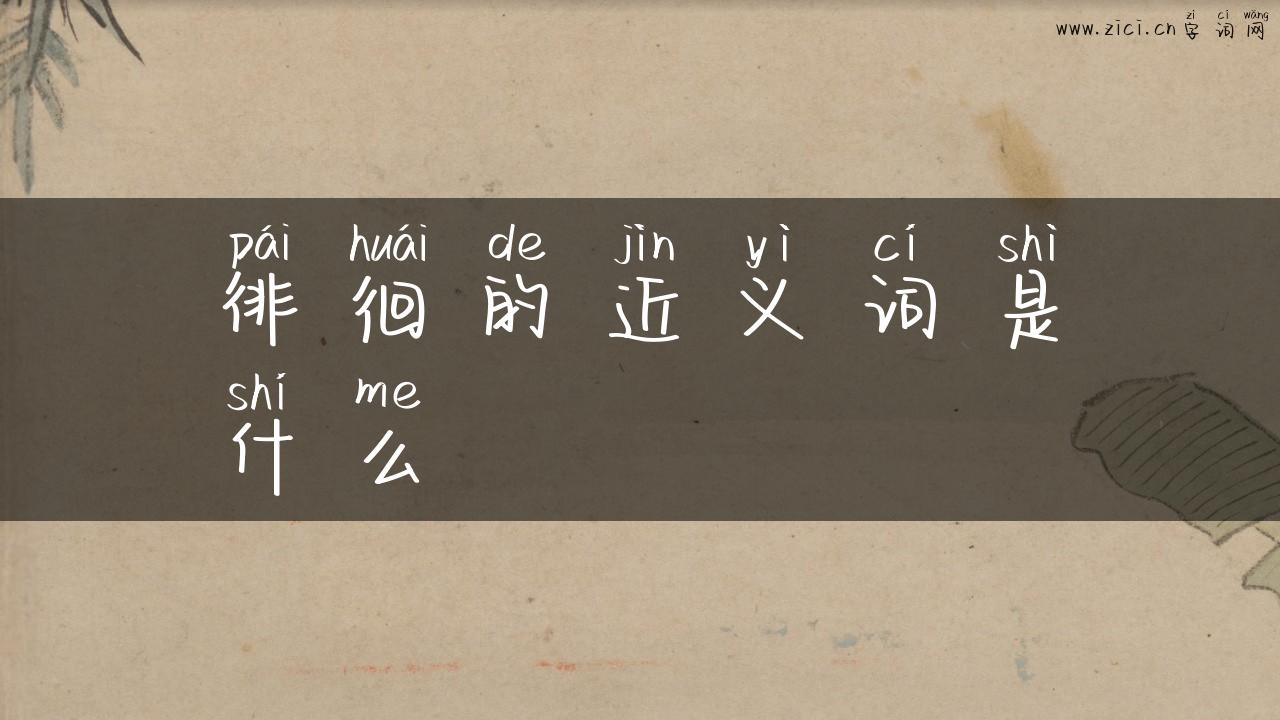 zì cí wǎng
www.zici.cn 字词网
pái huái de jìn yì cí shì
徘徊的近义词是
shí me
什么